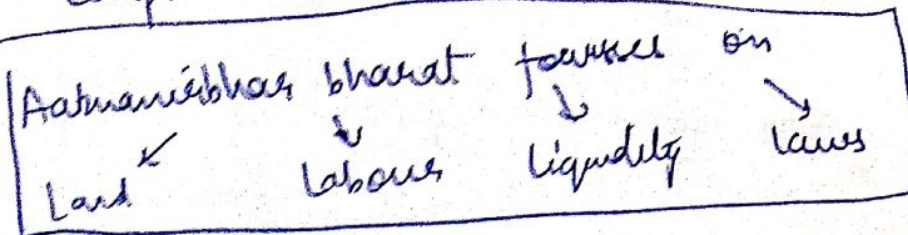 Aatmanirbhar bharat focusses on
Land Labour Liquidity laws